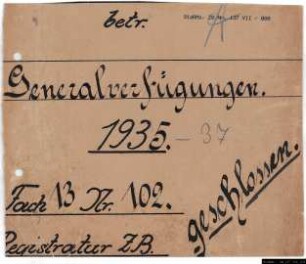 betr.
Generalverfügungen.
1935.-37
Fach 13 Nr. 102.
geschlossen.
Registratur Z.B.